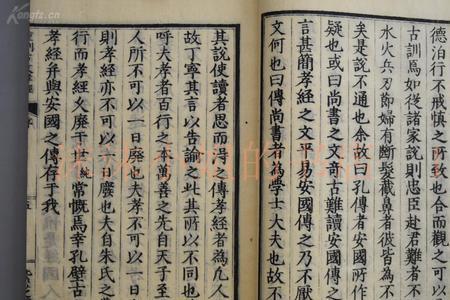 Kongfz.cn
德泊行不戒慎之所致也合而觀之可以
古訓焉如後諸家說則忠臣赴君難者不
水火兵刃節婦有斷髮截鼻者彼皆為不
矣是說不通也余故曰孔傳者安國所作
疑也或曰尚書之文奇古難讀安國傳之
言甚簡孝經之文平易安國傳之乃不厭
文何也曰傳尚書者為學士大夫也故不
其說使讀者思而得之傳孝經者為凡人
故丁寧其言以告諭之此其所以不同也
呼夫孝者百行之本萬善之先自天子至
人所不可以一日廢也夫孝不可以一日
則孝經亦不可以一日廢也夫自朱氏之
行而孝經久廢于世純常慨焉幸孔壁古
孝經并與安國之傳存于我